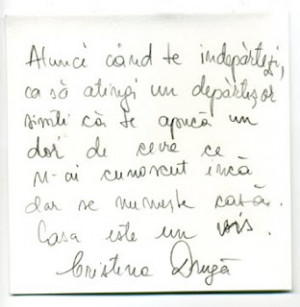 Atunci când te indepărtezi,
ca să atingi un depărtișor
simți că te apucă un
dor de ceva ce
n-ai cunoscut încă
dar se numește casă.
Casa este un vis.
Cristina Drugă